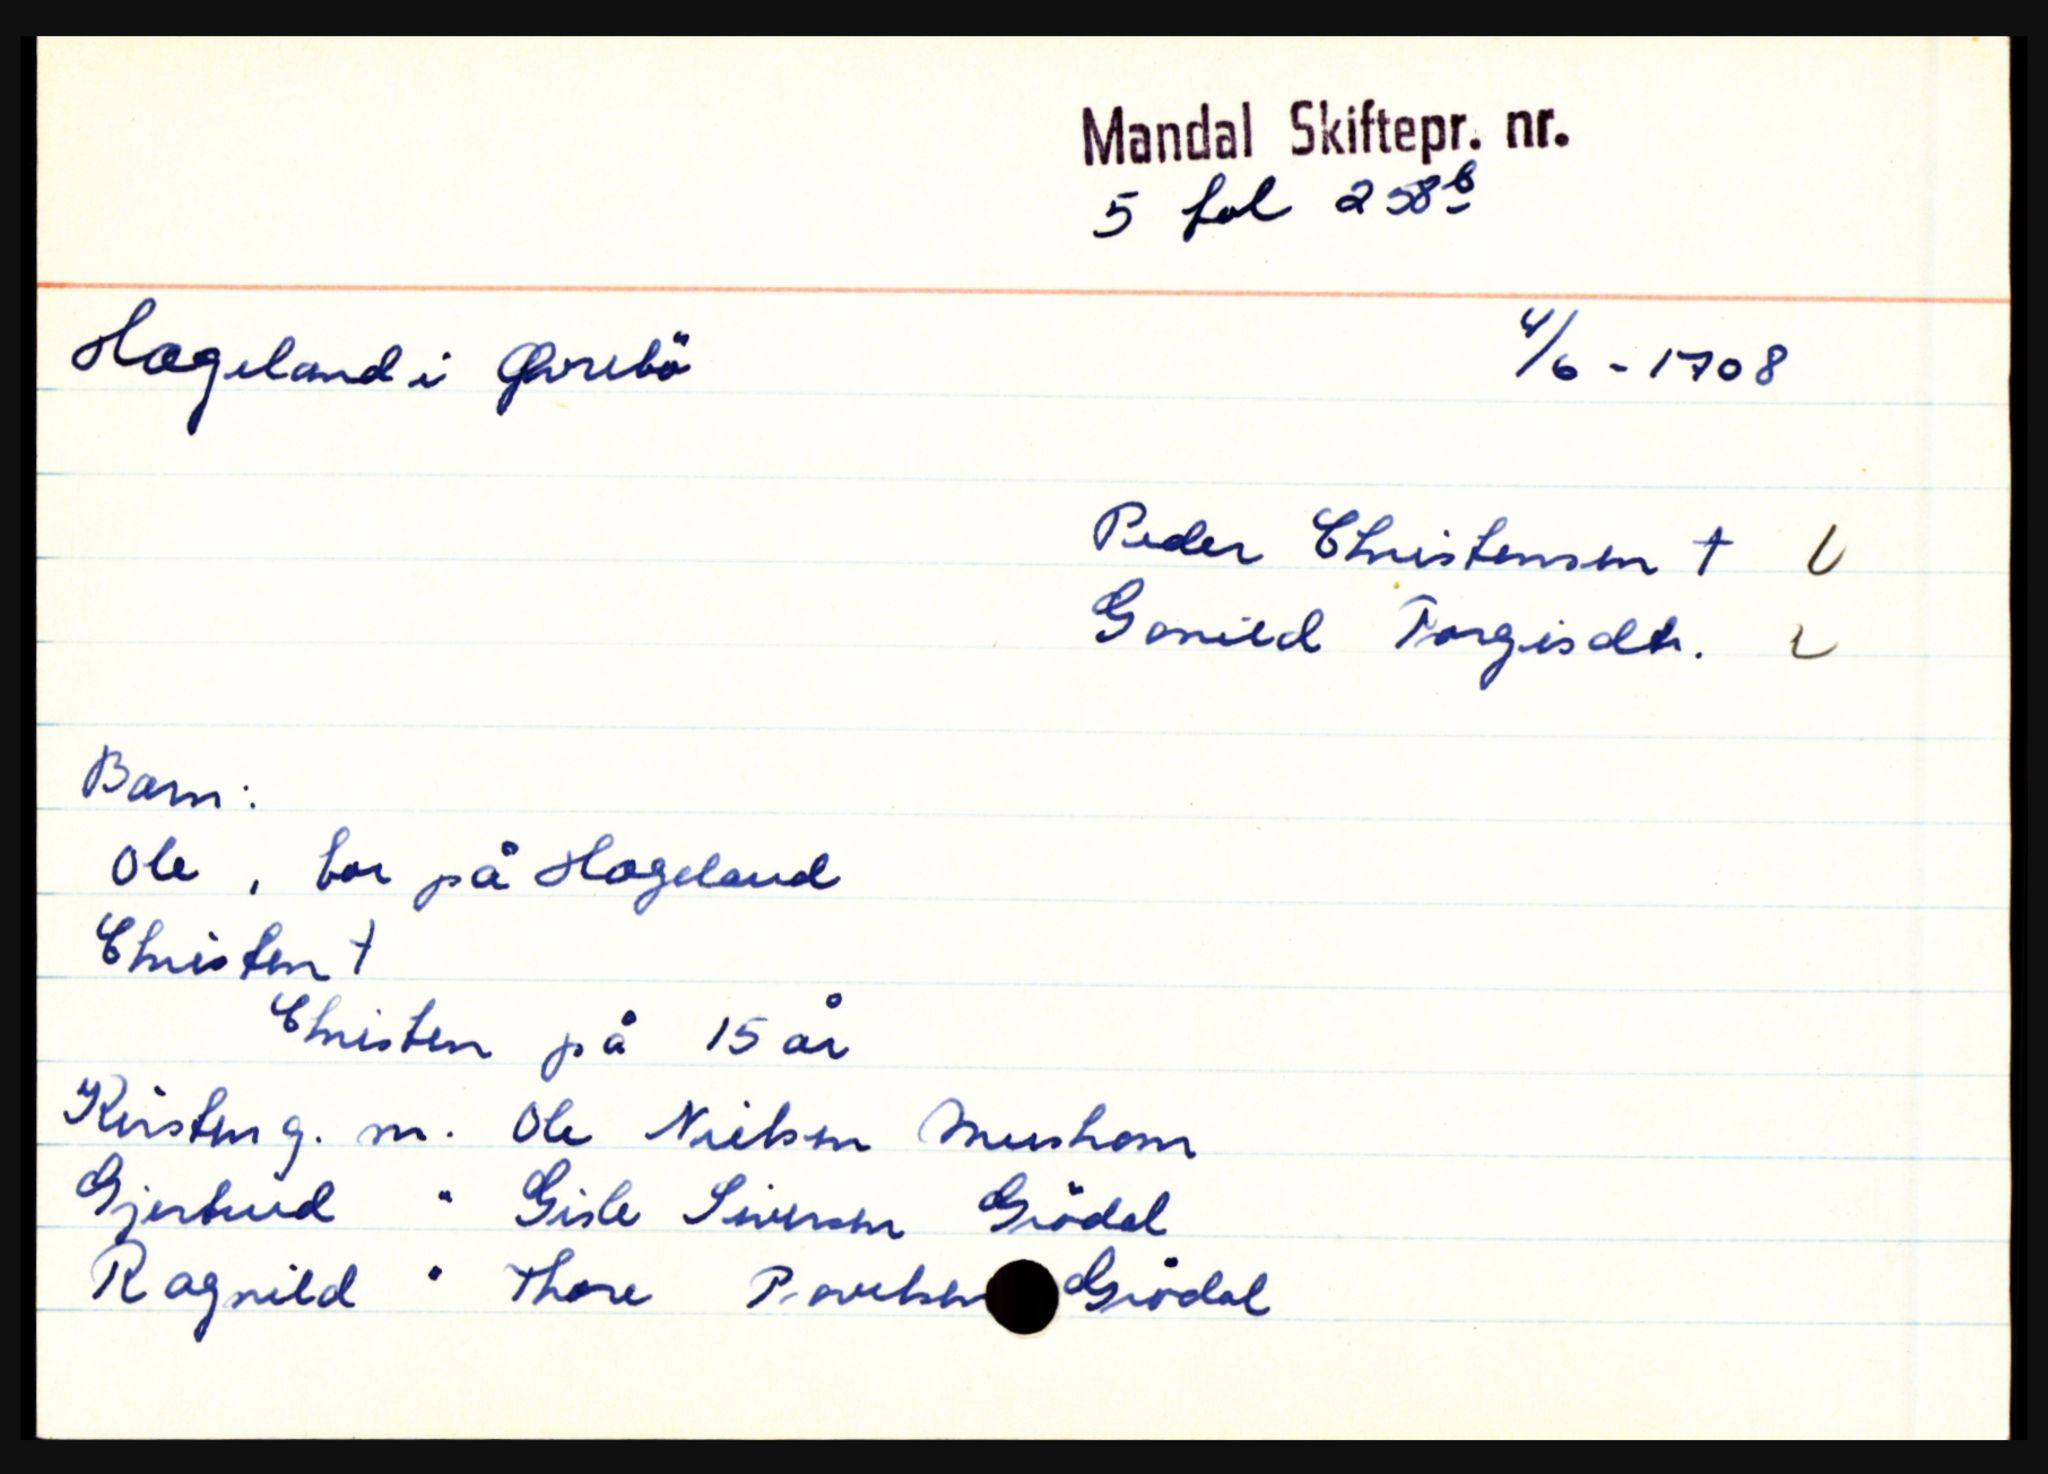 Mandal Skiftepr. nr.
5 fol 258b
Hægeland i Øvrebö 4/6 - 1708
Peder Christensen †
Gonild Torgisdtr.
Barn:
Ole , bor på Hægeland
Christen †
Christen på 15 år
Kirsten g. m. Ole Nielsen
Gjertrud " Gisle Siversen Grödal
Ragnild " Thore Povelsen Grödal